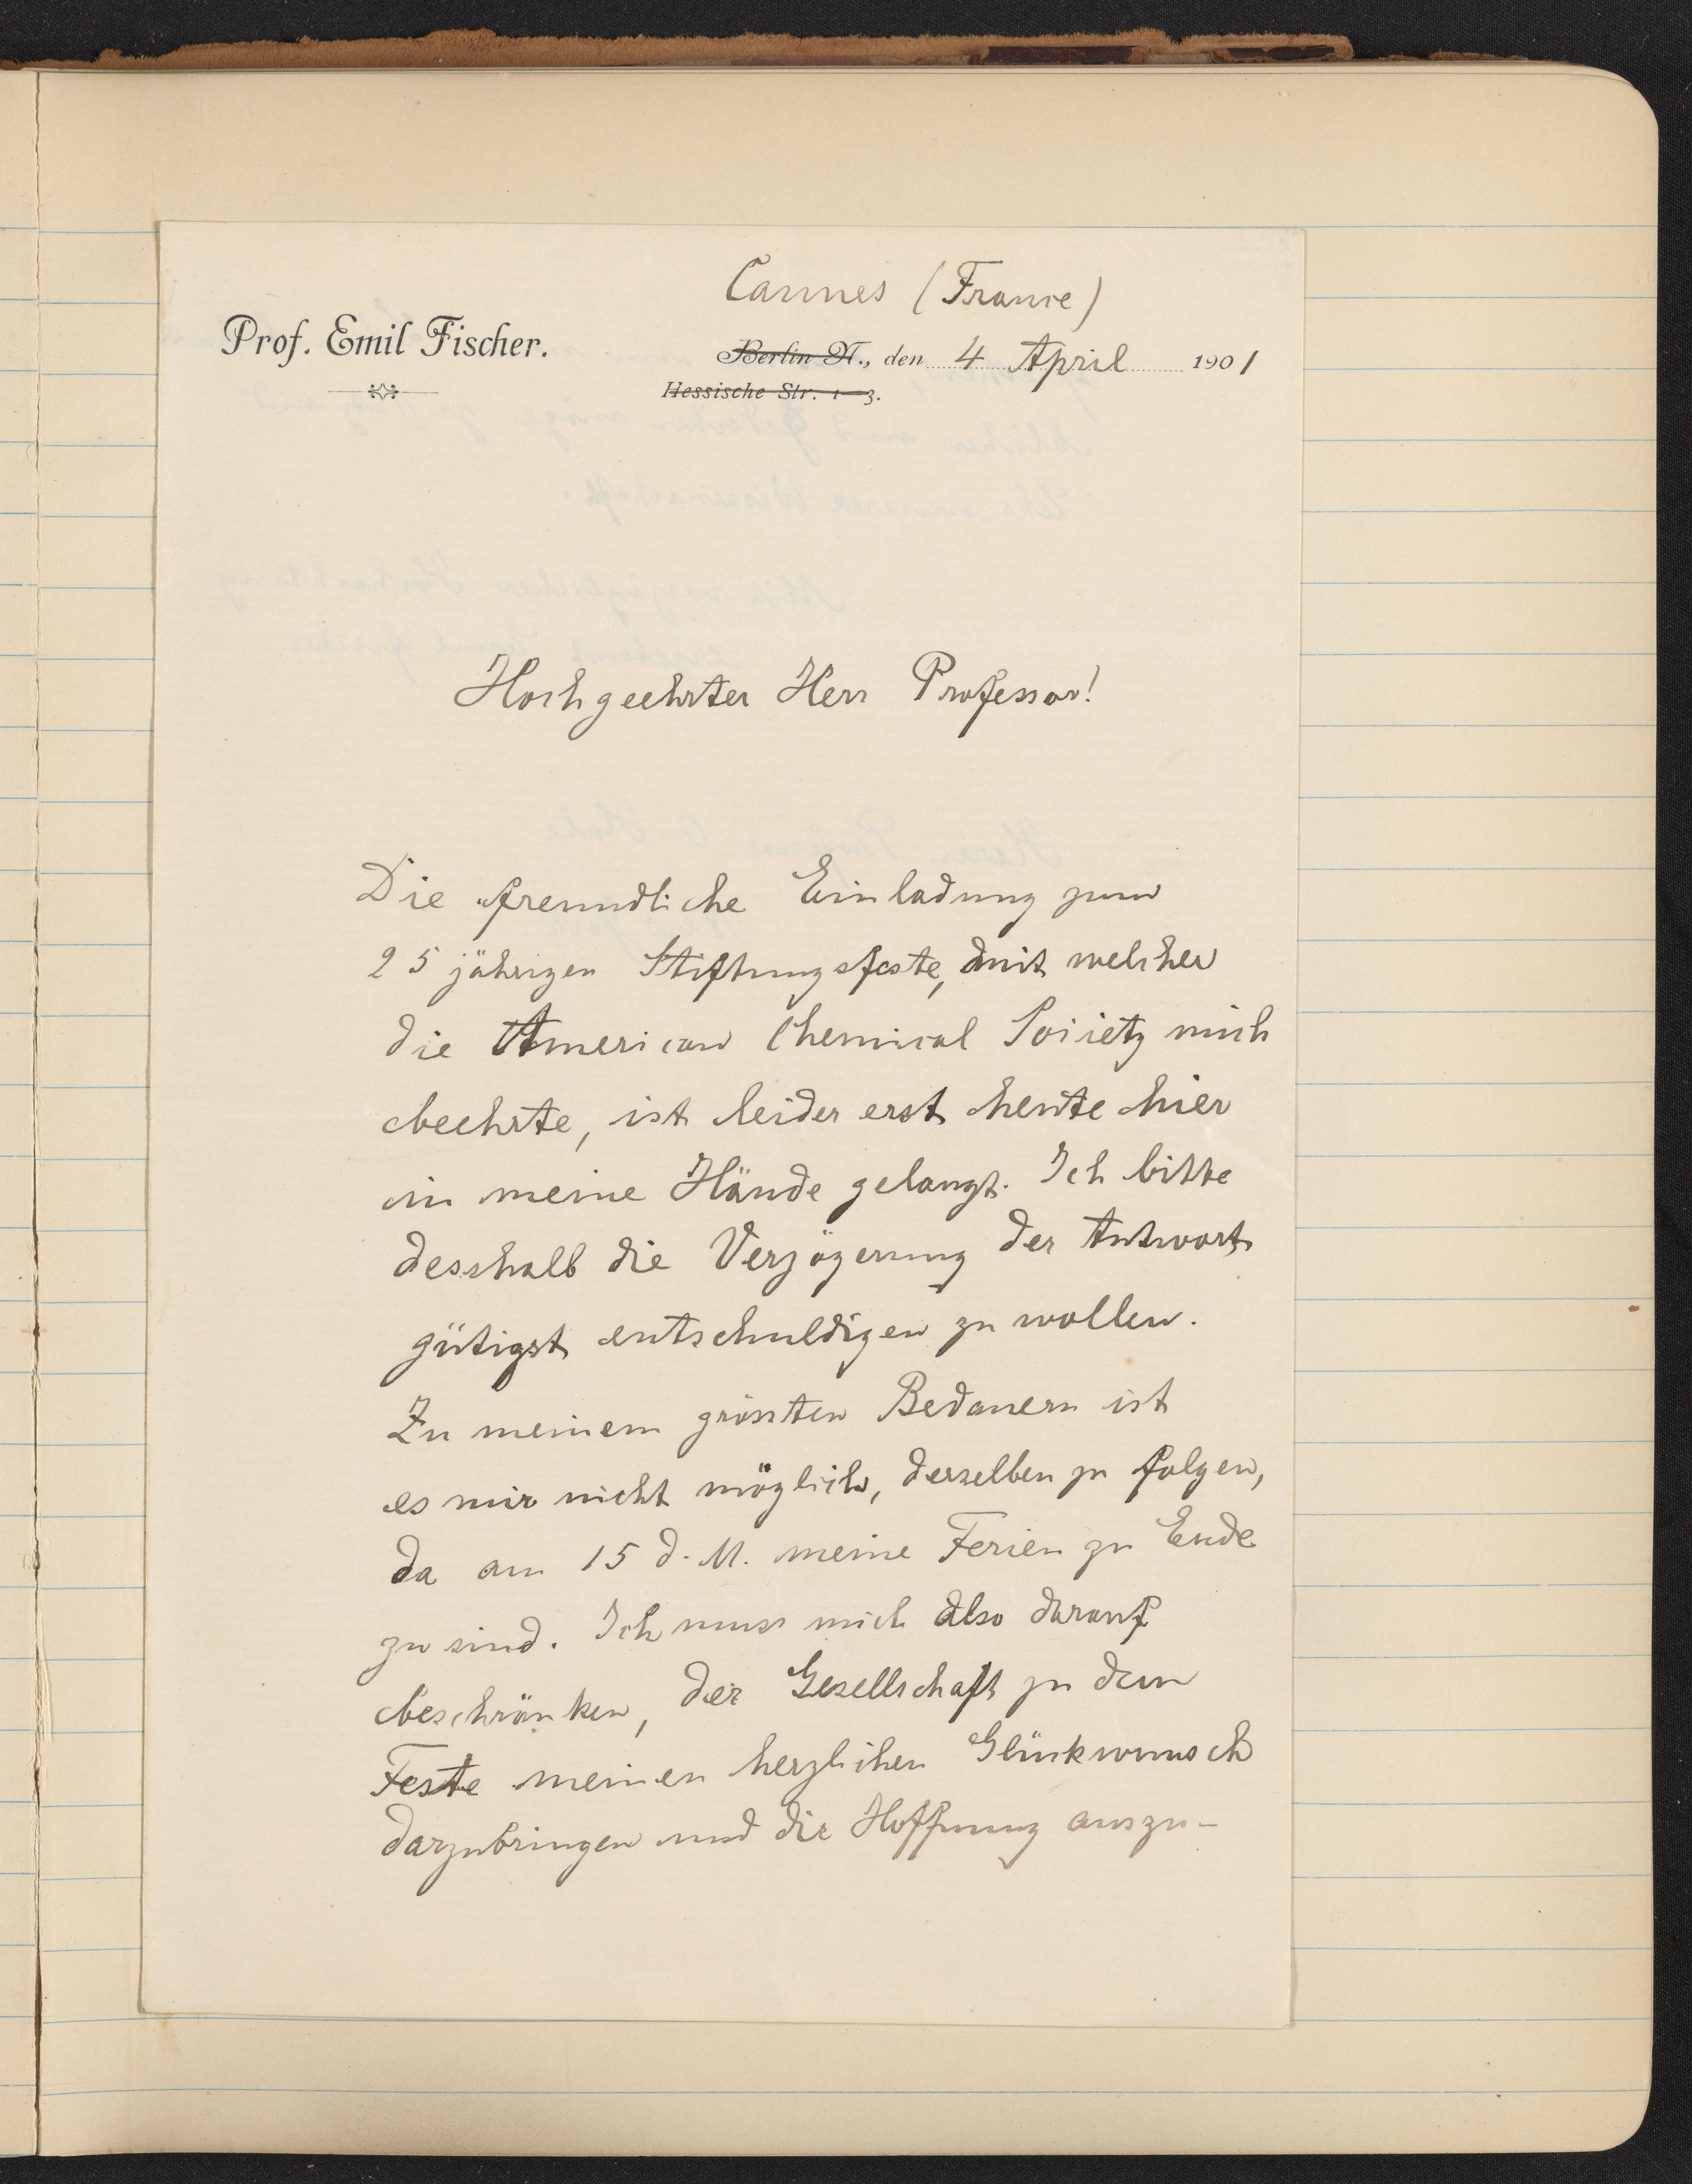 Cannes (France)
Prof. Emil Fischer.
Berlin N., den 4 April 1901
Hessische Str. 1-3.
Hochgeehrter Herr Professor!
Die freundliche Einladung zum
25 jährigen Stiftungsfeste, mit welcher
die American Chemical Society mich
beehrte, ist leider erst heute hier
in meine Hände gelangt. Ich bitte
desshalb die Verzögerung der Antwort
gütigst entschuldigen zu wollen.
Zu meinem grössten Bedauern ist
es mir nicht möglich, derselben zu folgen,
da am 15 d. M. meine Ferien zu Ende
zu sind. Ich muss mich also darauf
beschränken, der Gesellschaft zu dem
Feste meinen herzlichen Glückwunsch
darzubringen und die Hoffnung auszu-